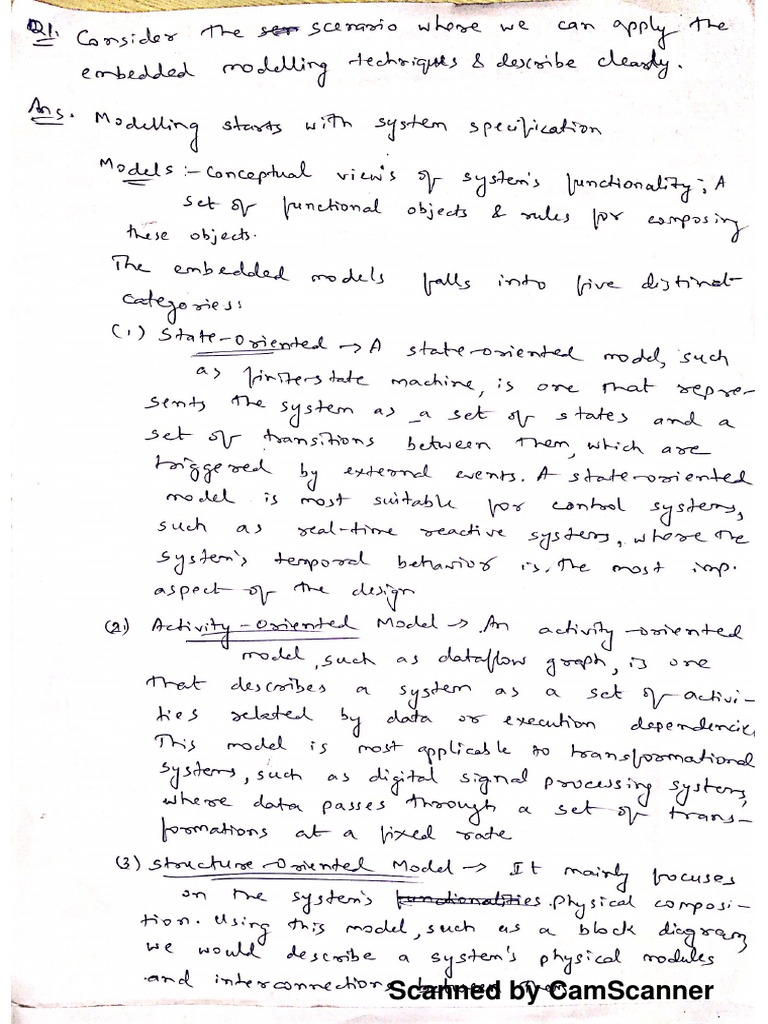 Q1. Consider the scenario where we can apply the
embedded modelling techniques & describe clearly.
Ans. Modelling starts with system specification
Models :- conceptual view's of system's functionality; A
set of functional objects & rules for composing
these objects.
The embedded models falls into five distinct
categories:
(1) State-Oriented → A state-oriented model, such
as finite-state machine, is one that repre-
sents the system as a set of states and a
set of transitions between them, which are
triggered by external events. A state-oriented
model is most suitable for control systems,
such as real-time reactive systems, where the
system's temporal behavior is the most imp.
aspect of the design
(2) Activity-Oriented Model → An activity-oriented
model, such as dataflow graph, is one
that describes a system as a set of activi-
ties related by data or execution dependencies.
This model is most applicable to transformational
systems, such as digital signal processing systems,
where data passes through a set of trans-
formations at a fixed rate
(3) Structure-Oriented Model → It mainly focuses
on the system's functionalities physical composi-
tion. Using this model, such as a block diagram,
we would describe a system's physical modules
and interconnections between them
Scanned by CamScanner